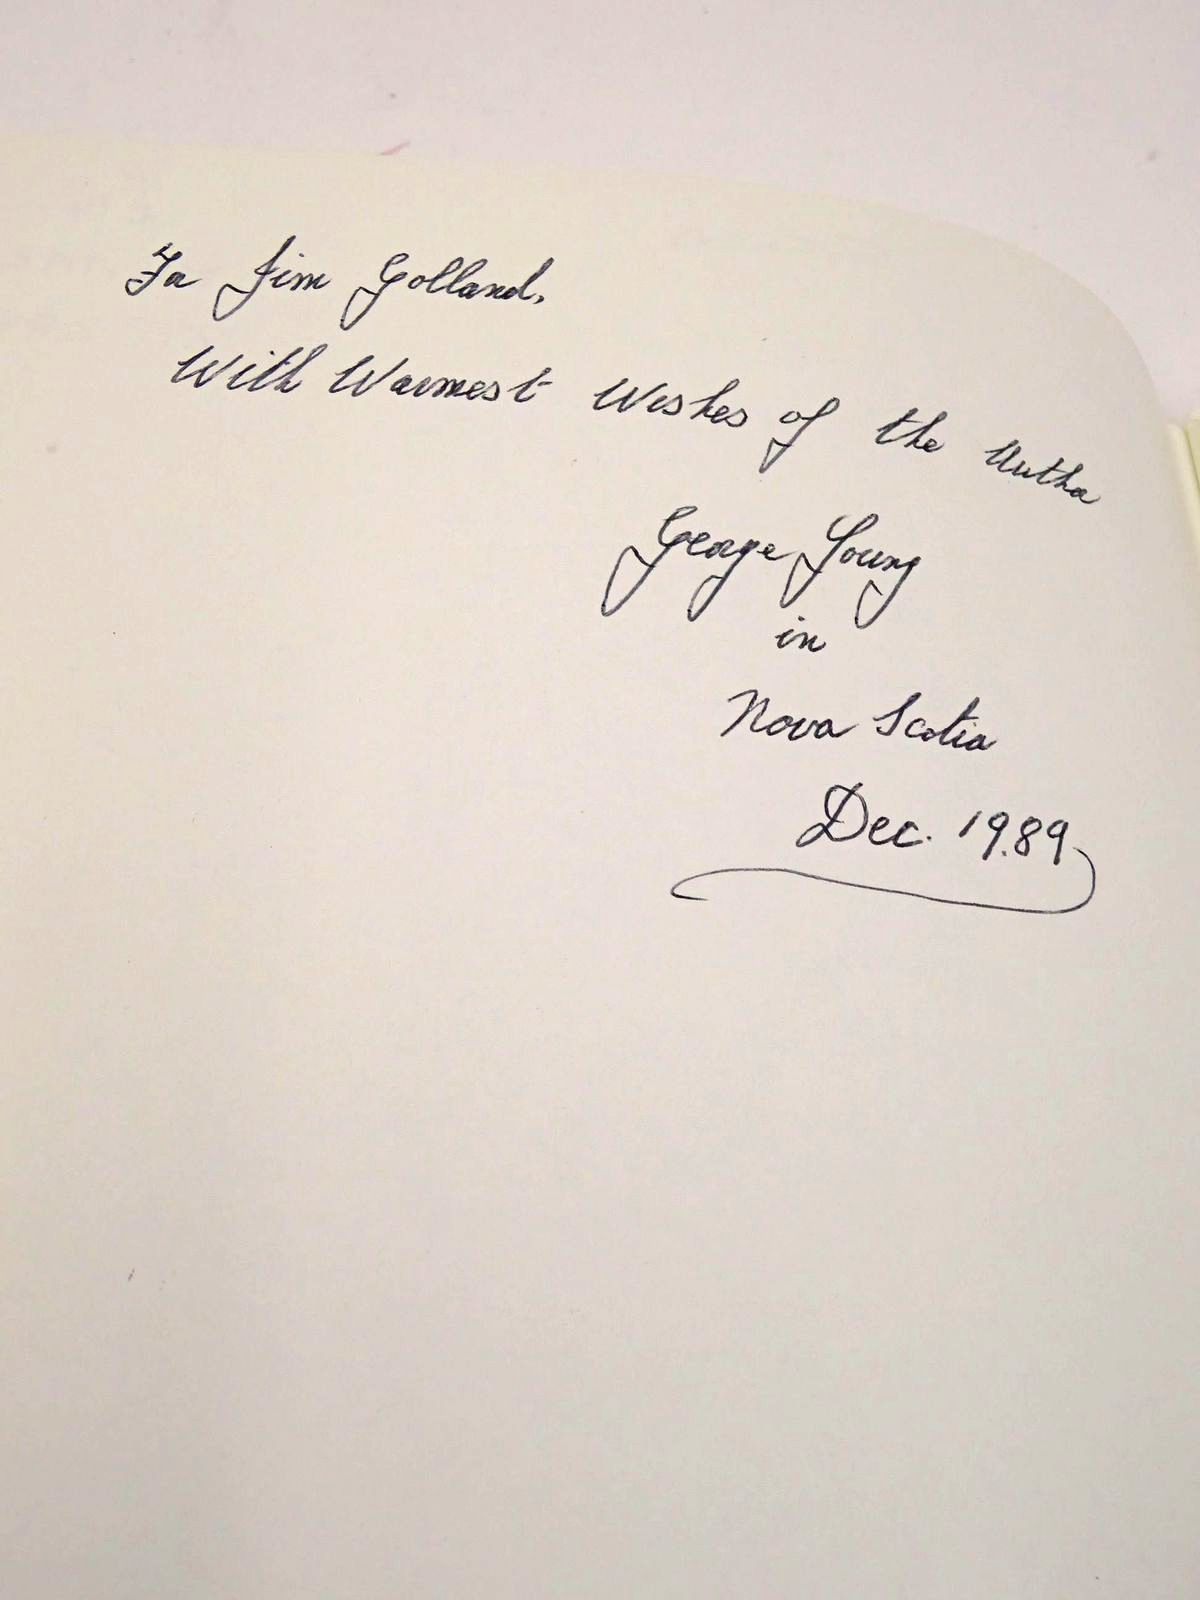 To Jim Golland,
With Warmest Wishes of the Author
George Young
in
Nova Scotia
Dec. 1989